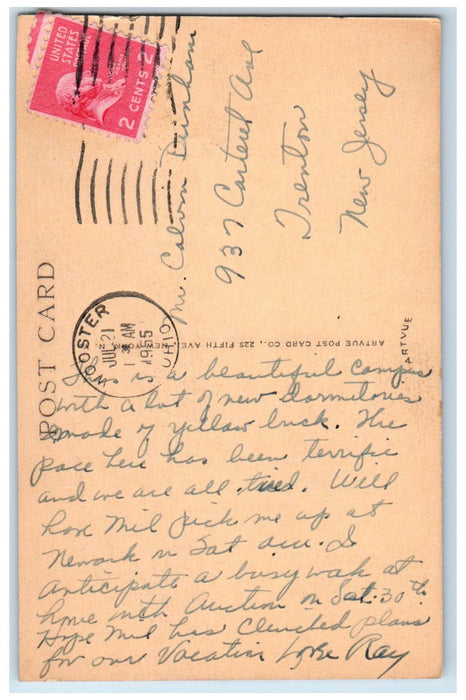 UNITED
STATES
POSTAGE
2 CENTS 2
Mr. Calvin Dunham
937 Carteret Ave
Trenton
New Jersey
POST CARD
WOOSTER
JUL 21
AM
1955
OHIO
ARTVUE POST CARD CO., 225 FIFTH AVE., NEW YORK
ARTVUE
This is a beautiful campus
with a lot of new dormitories
made of yellow brick. The
pace here has been terrific
and we are all tired. Will
have Mil pick me up at
Newark on Sat. I
anticipate a busy week at
home with Auction on Sat. 30th
Hope Mil has clinched plans
for our Vacation Love Ray